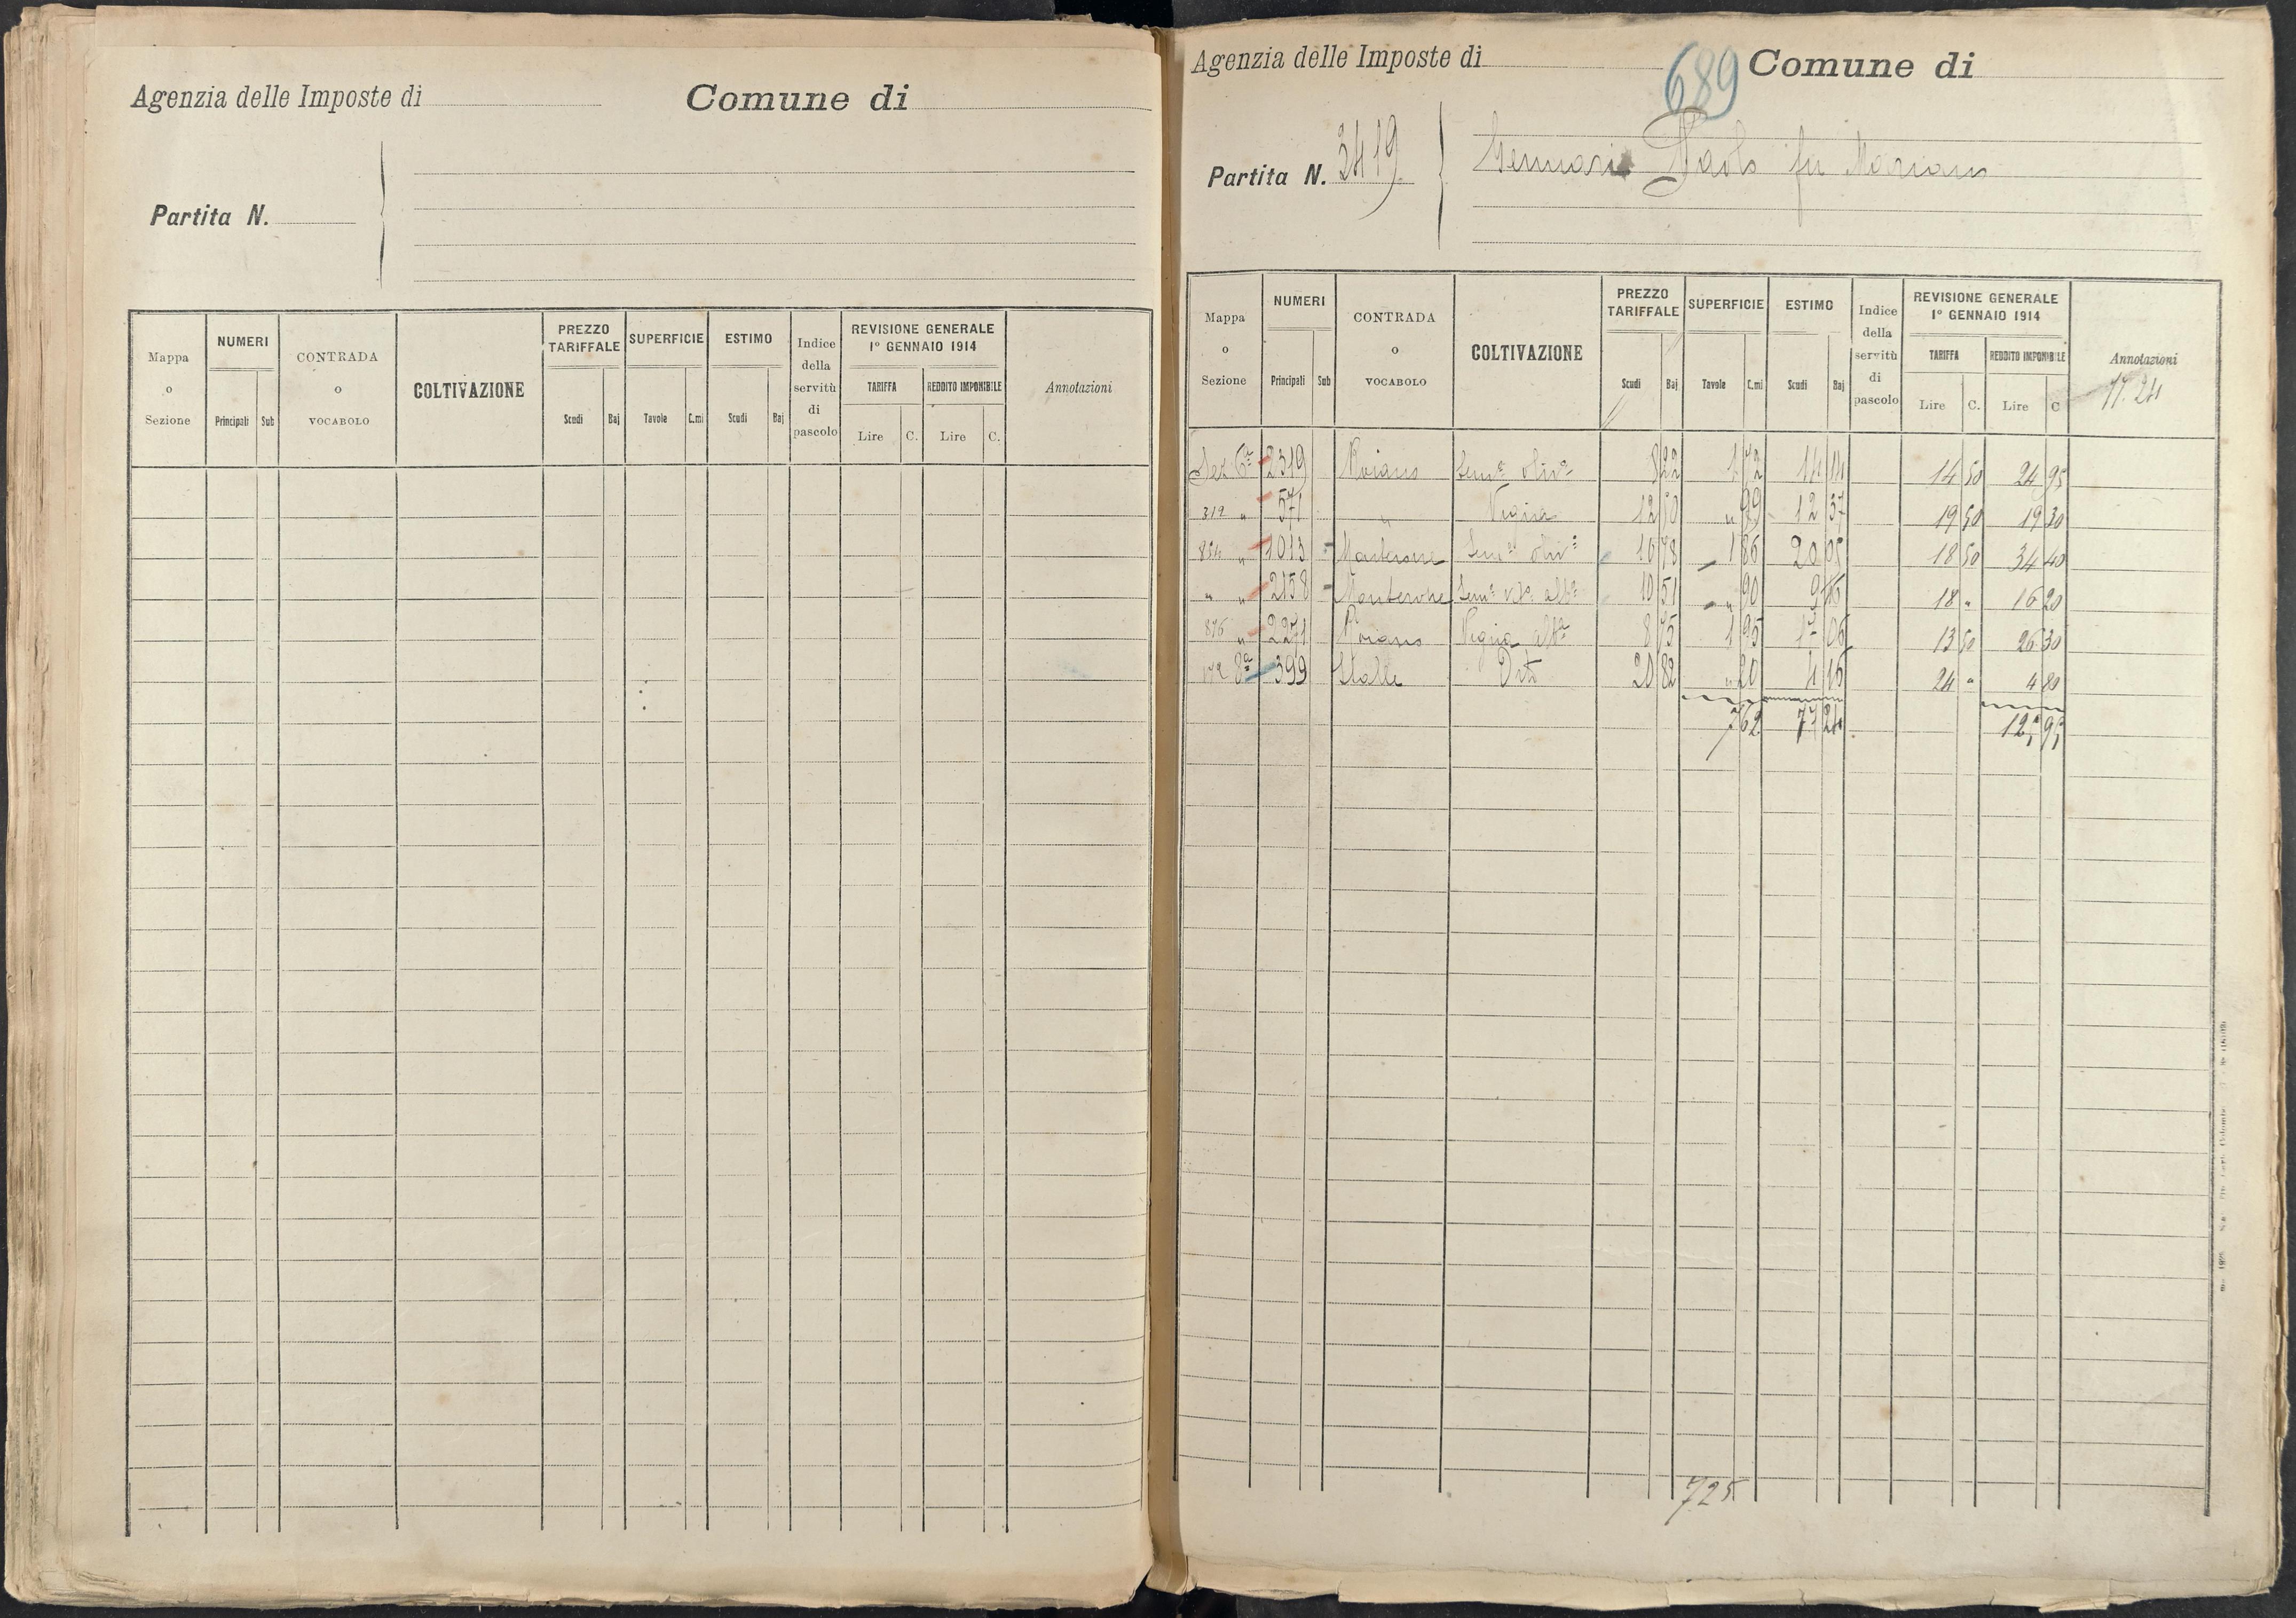 Agenzia delle Imposte di Comune di
Partita N.
Mappa o Sezione NUMERI Principali Sub CONTRADA o VOCABOLO COLTIVAZIONE PREZZO TARIFFALE Scudi Baj SUPERFICIE Tavole C.mi ESTIMO Scudi Baj Indice della servitù di pascolo REVISIONE GENERALE 1° GENNAIO 1914 TARIFFA Lire C. REDDITO IMPONIBILE Lire C. Annotazioni
Agenzia delle Imposte di 689 Comune di
Partita N. 3419 Gennari Paolo fu Mariano
Mappa o Sezione NUMERI Principali Sub CONTRADA o VOCABOLO COLTIVAZIONE PREZZO TARIFFALE Scudi Baj SUPERFICIE Tavole C.mi ESTIMO Scudi Baj Indice della servitù di pascolo REVISIONE GENERALE 1° GENNAIO 1914 TARIFFA Lire C. REDDITO IMPONIBILE Lire C Annotazioni
77.24
Sez. 6ª 2319 Roiano Semº olivº 8 22 1 72 14 14 14 50 24 95
319 " 571 " Vigna 12 50 " 99 12 37 19 50 19 30
854 " 1013 Monterone Semº olivº 10 78 1 86 20 05 18 50 34 40
" " 2158 Monterone Semº vitº albº 10 51 " 90 9 46 18 " 16 20
876 " 2271 Roiano Vigna albª 8 75 1 95 17 06 13 50 26 30
172 8ª 399 Stalle Orto 20 82 " 20 4 16 24 " 4 80
7 62 77 24 125 95
725